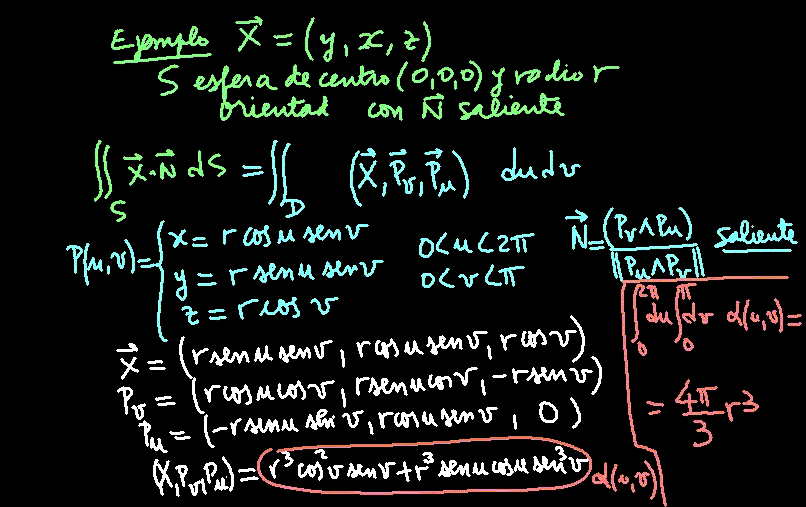 Ejemplo X⃗ = (y, x, z)
S esfera de centro (0,0,0) y radio r
orientad con N⃗ saliente
∬_S X⃗·N⃗ dS = ∬_D (X⃗, P⃗_v, P⃗_u) du dv
P(u,v) = { x = r cos u sen v 0<u<2π
y = r sen u sen v 0<v<π
z = r cos v
N⃗ = (P_v∧P_u) / ‖P_u∧P_v‖ saliente
X⃗ = (r sen u sen v, r cos u sen v, r cos v)
P_v = (r cos u cos v, r sen u cos v, -r sen v)
P_u = (-r sen u sen v, r cos u sen v, 0)
(X, P_v, P_u) = r³ cos² v sen v + r³ sen u cos u sen³ v α(u,v)
∫_0^{2π} du ∫_0^π dv α(u,v) =
= 4π/3 r³